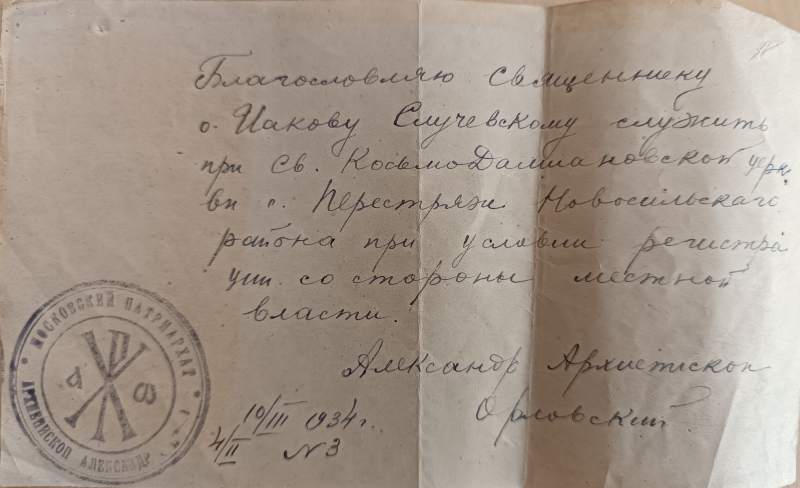 Благословляю священнику
о. Иакову Случевскому служить
при св. КосьмоДамиановской церк
ви с. Перестряж Новосильскаго
района при условии регистра
ции со стороны местной
власти.
Александр Архиепископ
Орловский
10/III 1934 г.
4/II N 3
МОСКОВСКИЙ ПАТРИАРХАТ
АРХИЕПИСКОП АЛЕКСАНДР